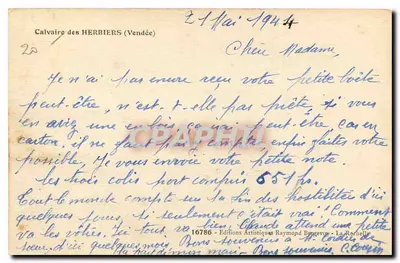 21 Mai 1944
Calvaire des HERBIERS (Vendée)
20
Chère Madame,
Je n'ai pas encore reçu votre petite boîte
peut-être, n'est-elle pas prête, si vous
en avez une en bois ça va, peut être cas en
carton. il ne faut pas compte enfin faites votre
possible, Je vous envoie votre petite note.
les trois colis port compris 651 frs.
Tout le monde compte sur la fin des hostilités d'ici
quelques jours, si seulement c'était vrai. Comment
va les vôtres. Ici tous va bien, Claude attend une petite
soeur. d'ici quelques mois. Bons souvenirs à M.
16780 - Editions Artistiques Raymond - La Rochelle
Bons souvenirs,
CPARAMA